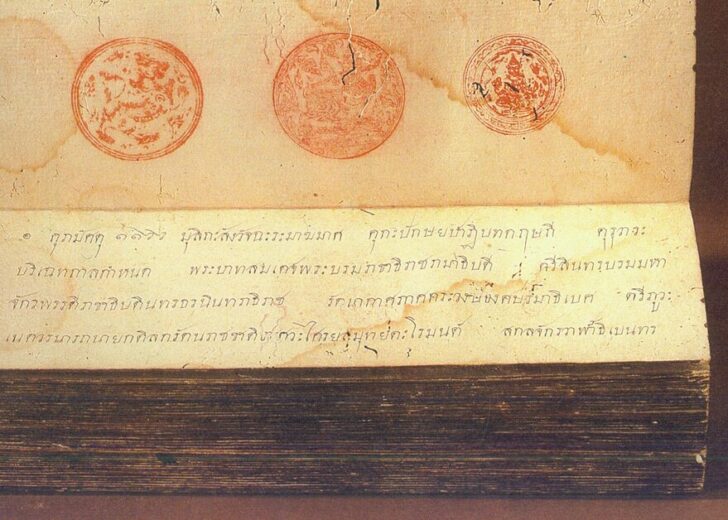 ๏ ศุภมัศดุ ๑๑๖๖ มุสิกะสังวัจฉะระมาฆมาศ ศุกะปักษยปาฏิบทดฤษถี คุรุภวะ
บริเฉทกาลกำหนด พระบาทสมเดจพระบรมราชาธิราชรามาธิบดี ศรีสินทรบรมมหา
จักรพรรดิราชาธิบดินทรธรนินทราธิราช รัตนากาศภาศกรวงษองคบรมาธิเบศ ตรีภูวะ
เนตวรนารถนายกดิลกรัตนราชชาติ สมุทยดะโรมนต์ สกลจักรวาฬาธิเบนทร